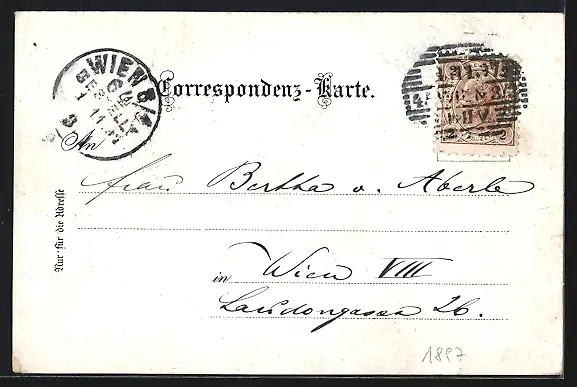 WIEN 6/4
BESTELLT
Correspondenz-Karte.
An
Frau Bertha v. Aberle
in Wien VIII
Laudongasse 26.
Nur für die Adresse
1897